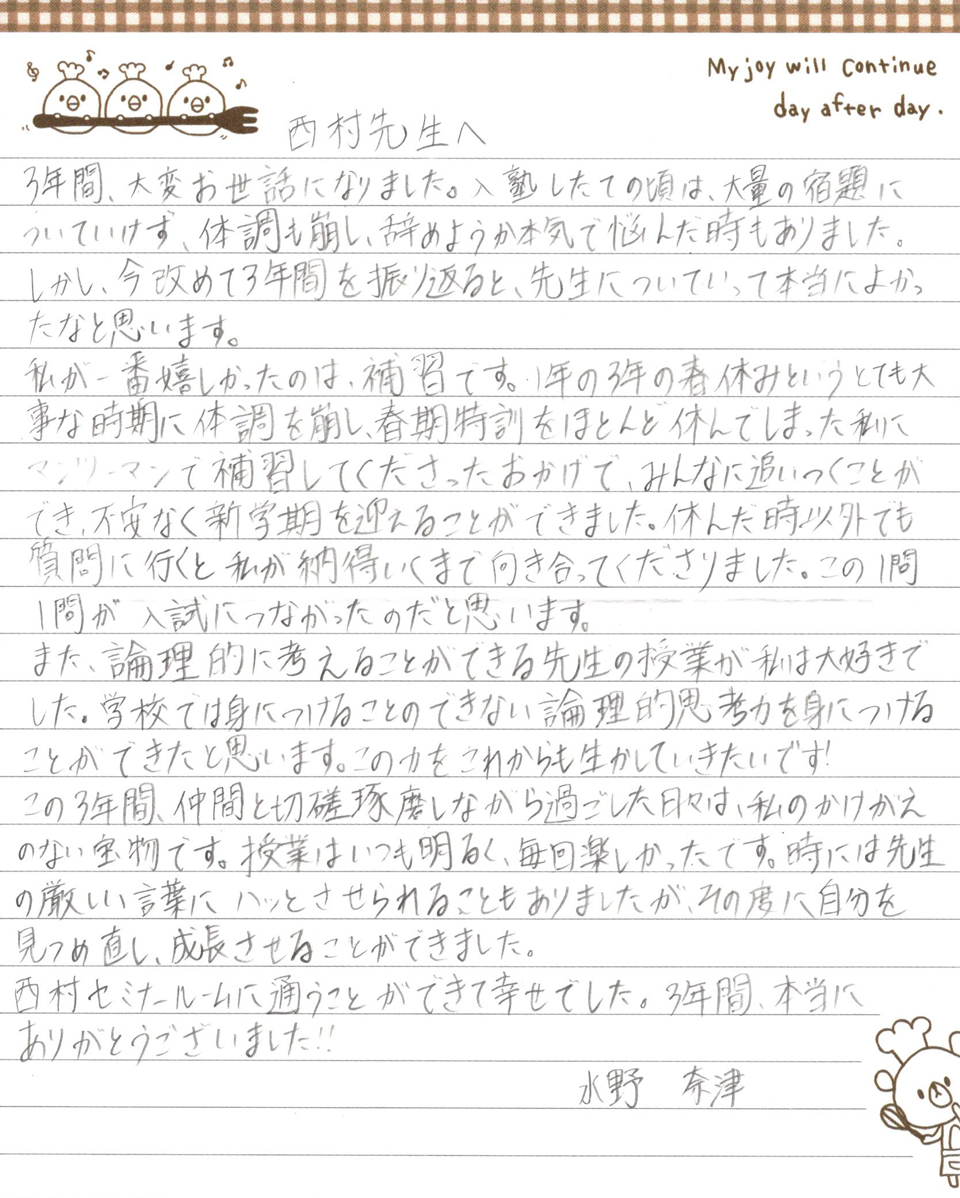 My joy will continue
day after day.
西村先生へ
3年間、大変お世話になりました。入塾したての頃は、大量の宿題に
ついていけず、体調も崩し、辞めようか本気で悩んだ時もありました。
しかし、今改めて3年間を振り返ると、先生についていって本当によかっ
たなと思います。
私が一番嬉しかったのは、補習です。1年の3年の春休みというとても大
事な時期に体調を崩し、春期特訓をほとんど休んでしまった私に
マンツーマンで補習してくださったおかげで、みんなに追いつくことが
でき、不安なく新学期を迎えることができました。休んだ時以外でも
質問に行くと私が納得いくまで向き合ってくださりました。この1問
1問が入試につながったのだと思います。
また、論理的に考えることができる先生の授業が私は大好きで
した。学校では身につけることのできない論理的思考力を身につける
ことができたと思います。この力をこれからも生かしていきたいです!
この3年間、仲間と切磋琢磨しながら過ごした日々は、私のかけがえ
のない宝物です。授業はいつも明るく、毎回楽しかったです。時には先生
の厳しい言葉にハッとさせられることもありましたが、その度に自分を
見つめ直し、成長させることができました。
西村セミナールームに通うことができて幸せでした。3年間、本当に
ありがとうございました!!
水野 奈津